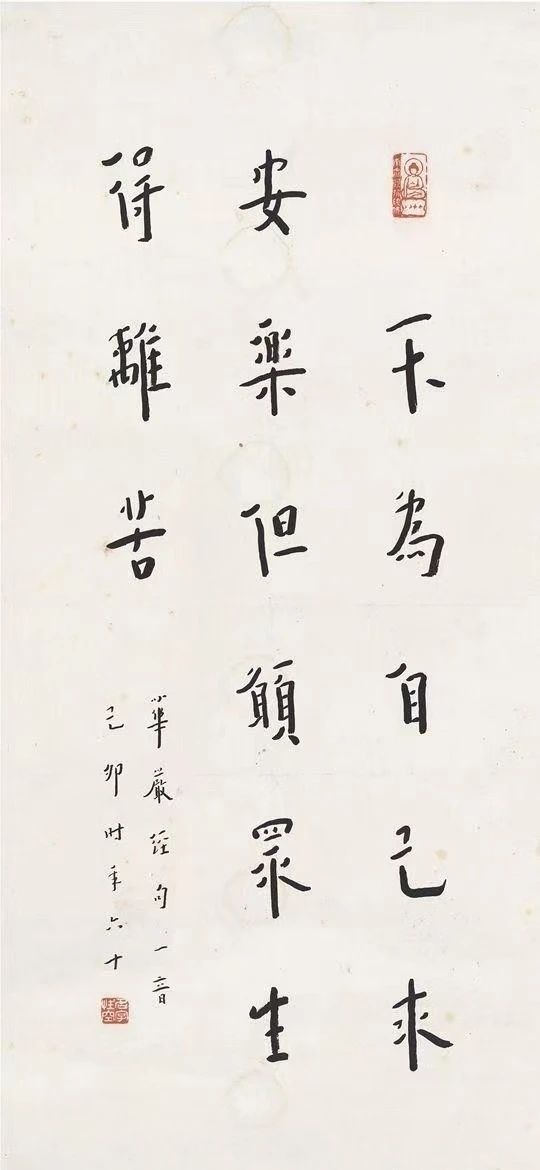 不為自己求
安樂但願眾生
得離苦
華嚴經句一音
己卯时年六十
名字性空